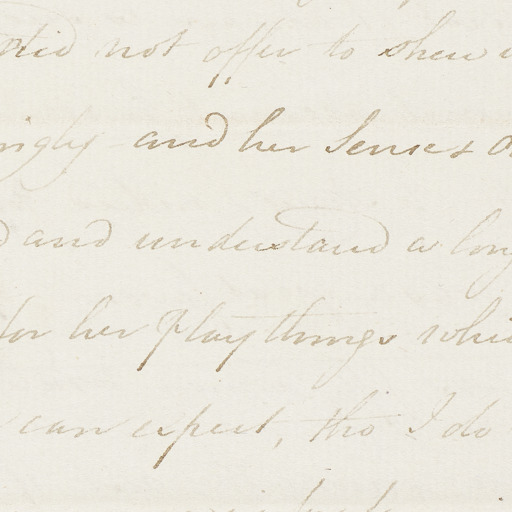 not offer to shew
and her Senses
and understand a long
for her Play things whi
can expect, tho I do